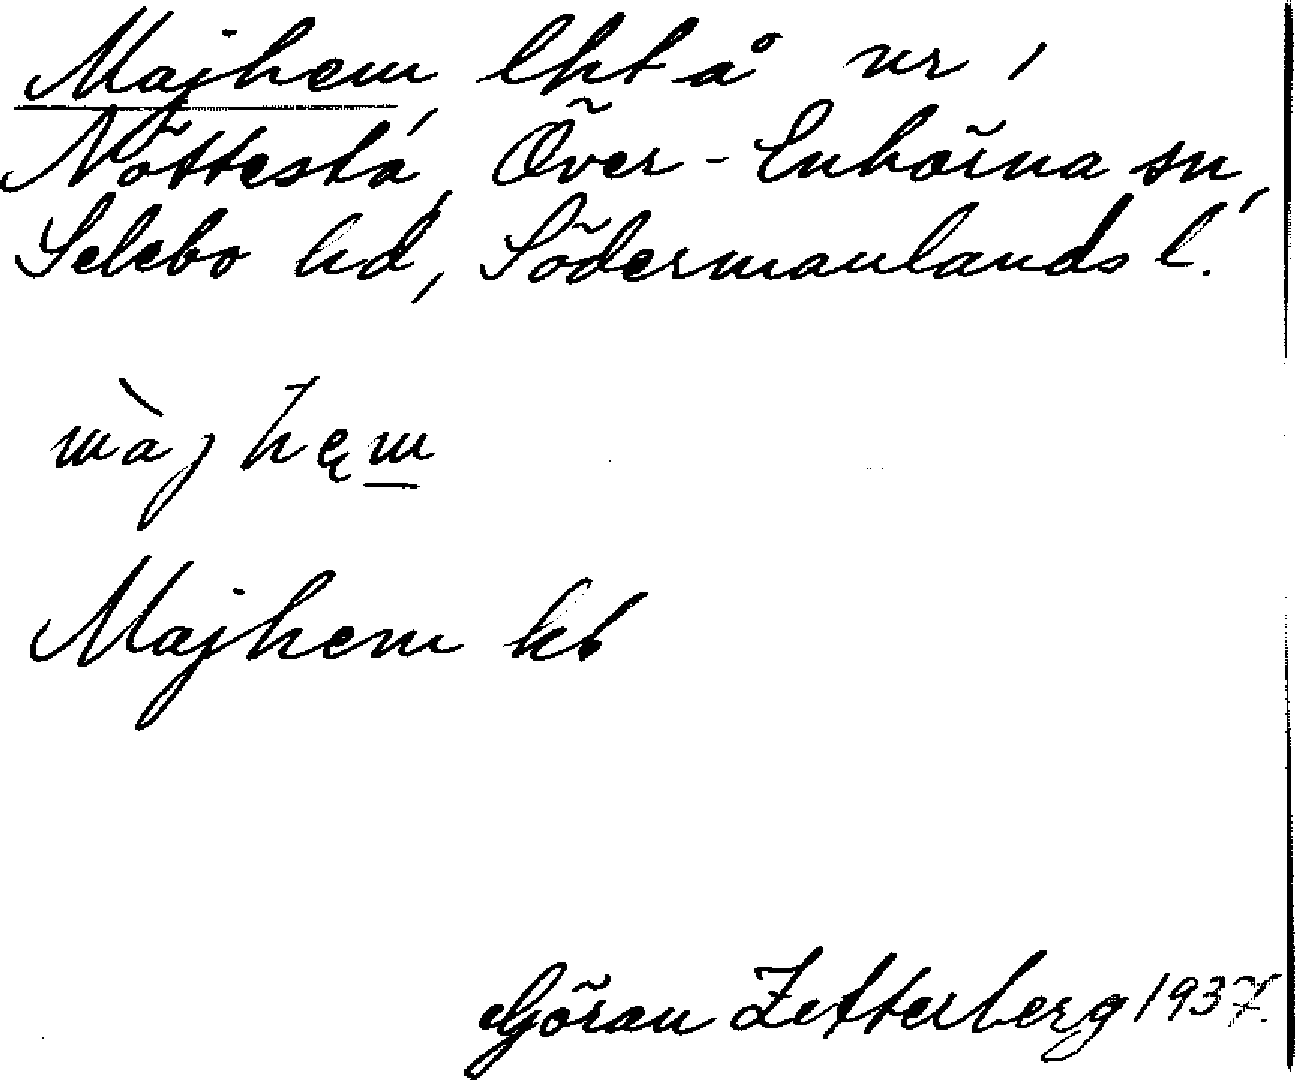 Majhem, lht å nr 1
Nöttesta, Över-Enhörna sn,
Selebo hd, Södermanlands l.
màjhęm
Majhem kb
Göran Zetterberg 1937.